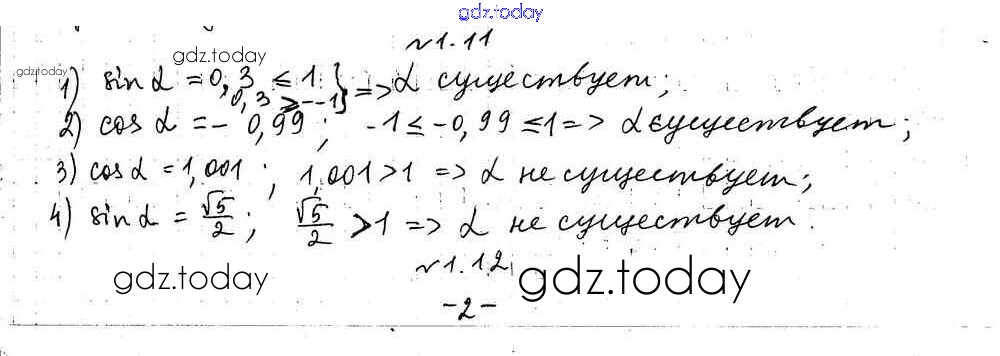 gdz.today
№1.11
gdz.today
gdz.today
1) sin α = 0,3 ≤ 1 } => α существует;
0,3 ≥ -1
2) cos α = - 0,99 ; -1 ≤ -0,99 ≤ 1 => α существует;
3) cos α = 1,001 ; 1,001 > 1 => α не существует;
4) sin α = √5/2 ; √5/2 > 1 => α не существует.
№1.12
gdz.today
gdz.today
-2-